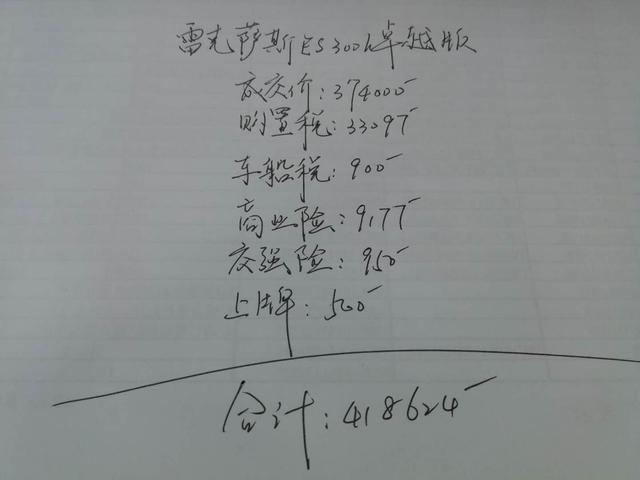 雷克萨斯ES300h卓越版
成交价:374000-
购置税:33097-
车船税:900-
商业险:9177-
交强险:950-
上牌:500-
合计:418624-